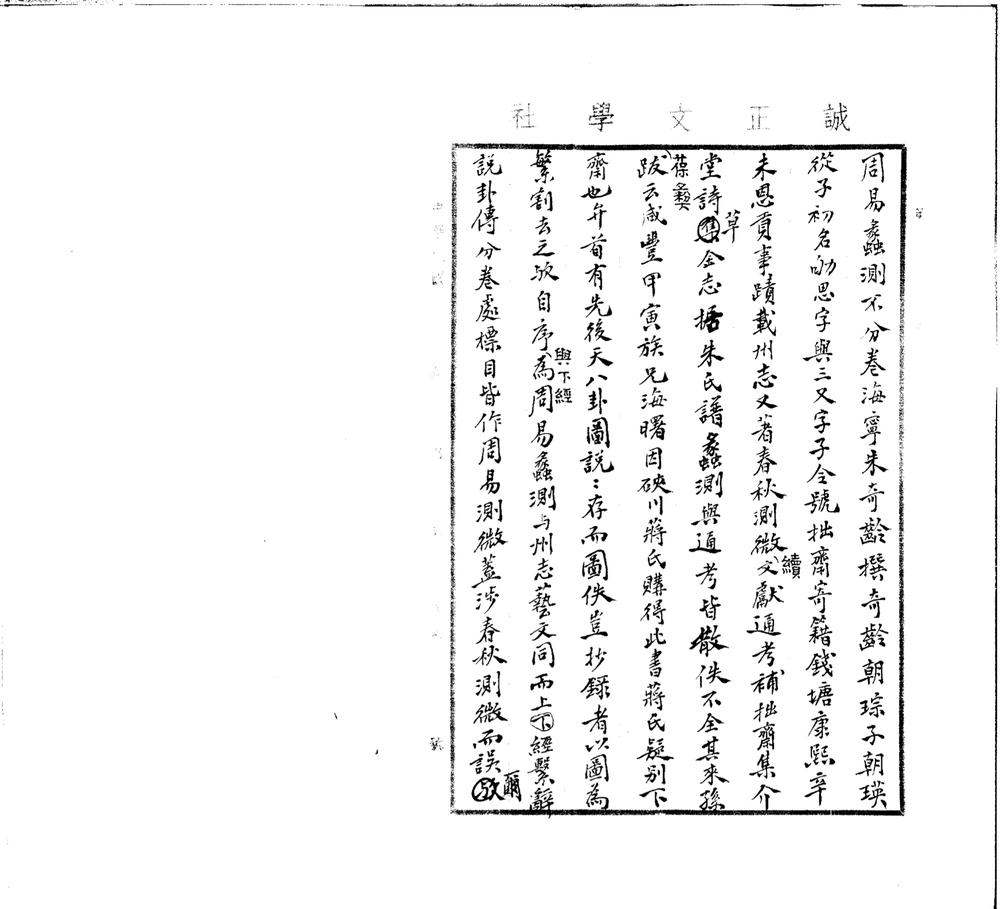 誠正文學社
周易蠡測不分卷海寧朱奇齡撰奇齡朝琮子朝瑛
從子初名劻思字與三又字子令號拙齋寄籍錢塘康熙辛
未恩貢事蹟載州志又著春秋測微續文獻通考補拙齋集介
堂詩集草金志據朱氏譜蠡測與通考皆散佚不全其來孫
葆彝跋云咸豐甲寅族兄海曙因硤川蔣氏購得此書蔣氏疑別下
齋也弁首有先後天八卦圖說:存而圖佚豈抄錄者以圖為
繁割去之歟自序為周易蠡測与州志藝文同而上下經與下經繫辭
說卦傳分卷處標目皆作周易測微蓋涉春秋測微而誤歟爾